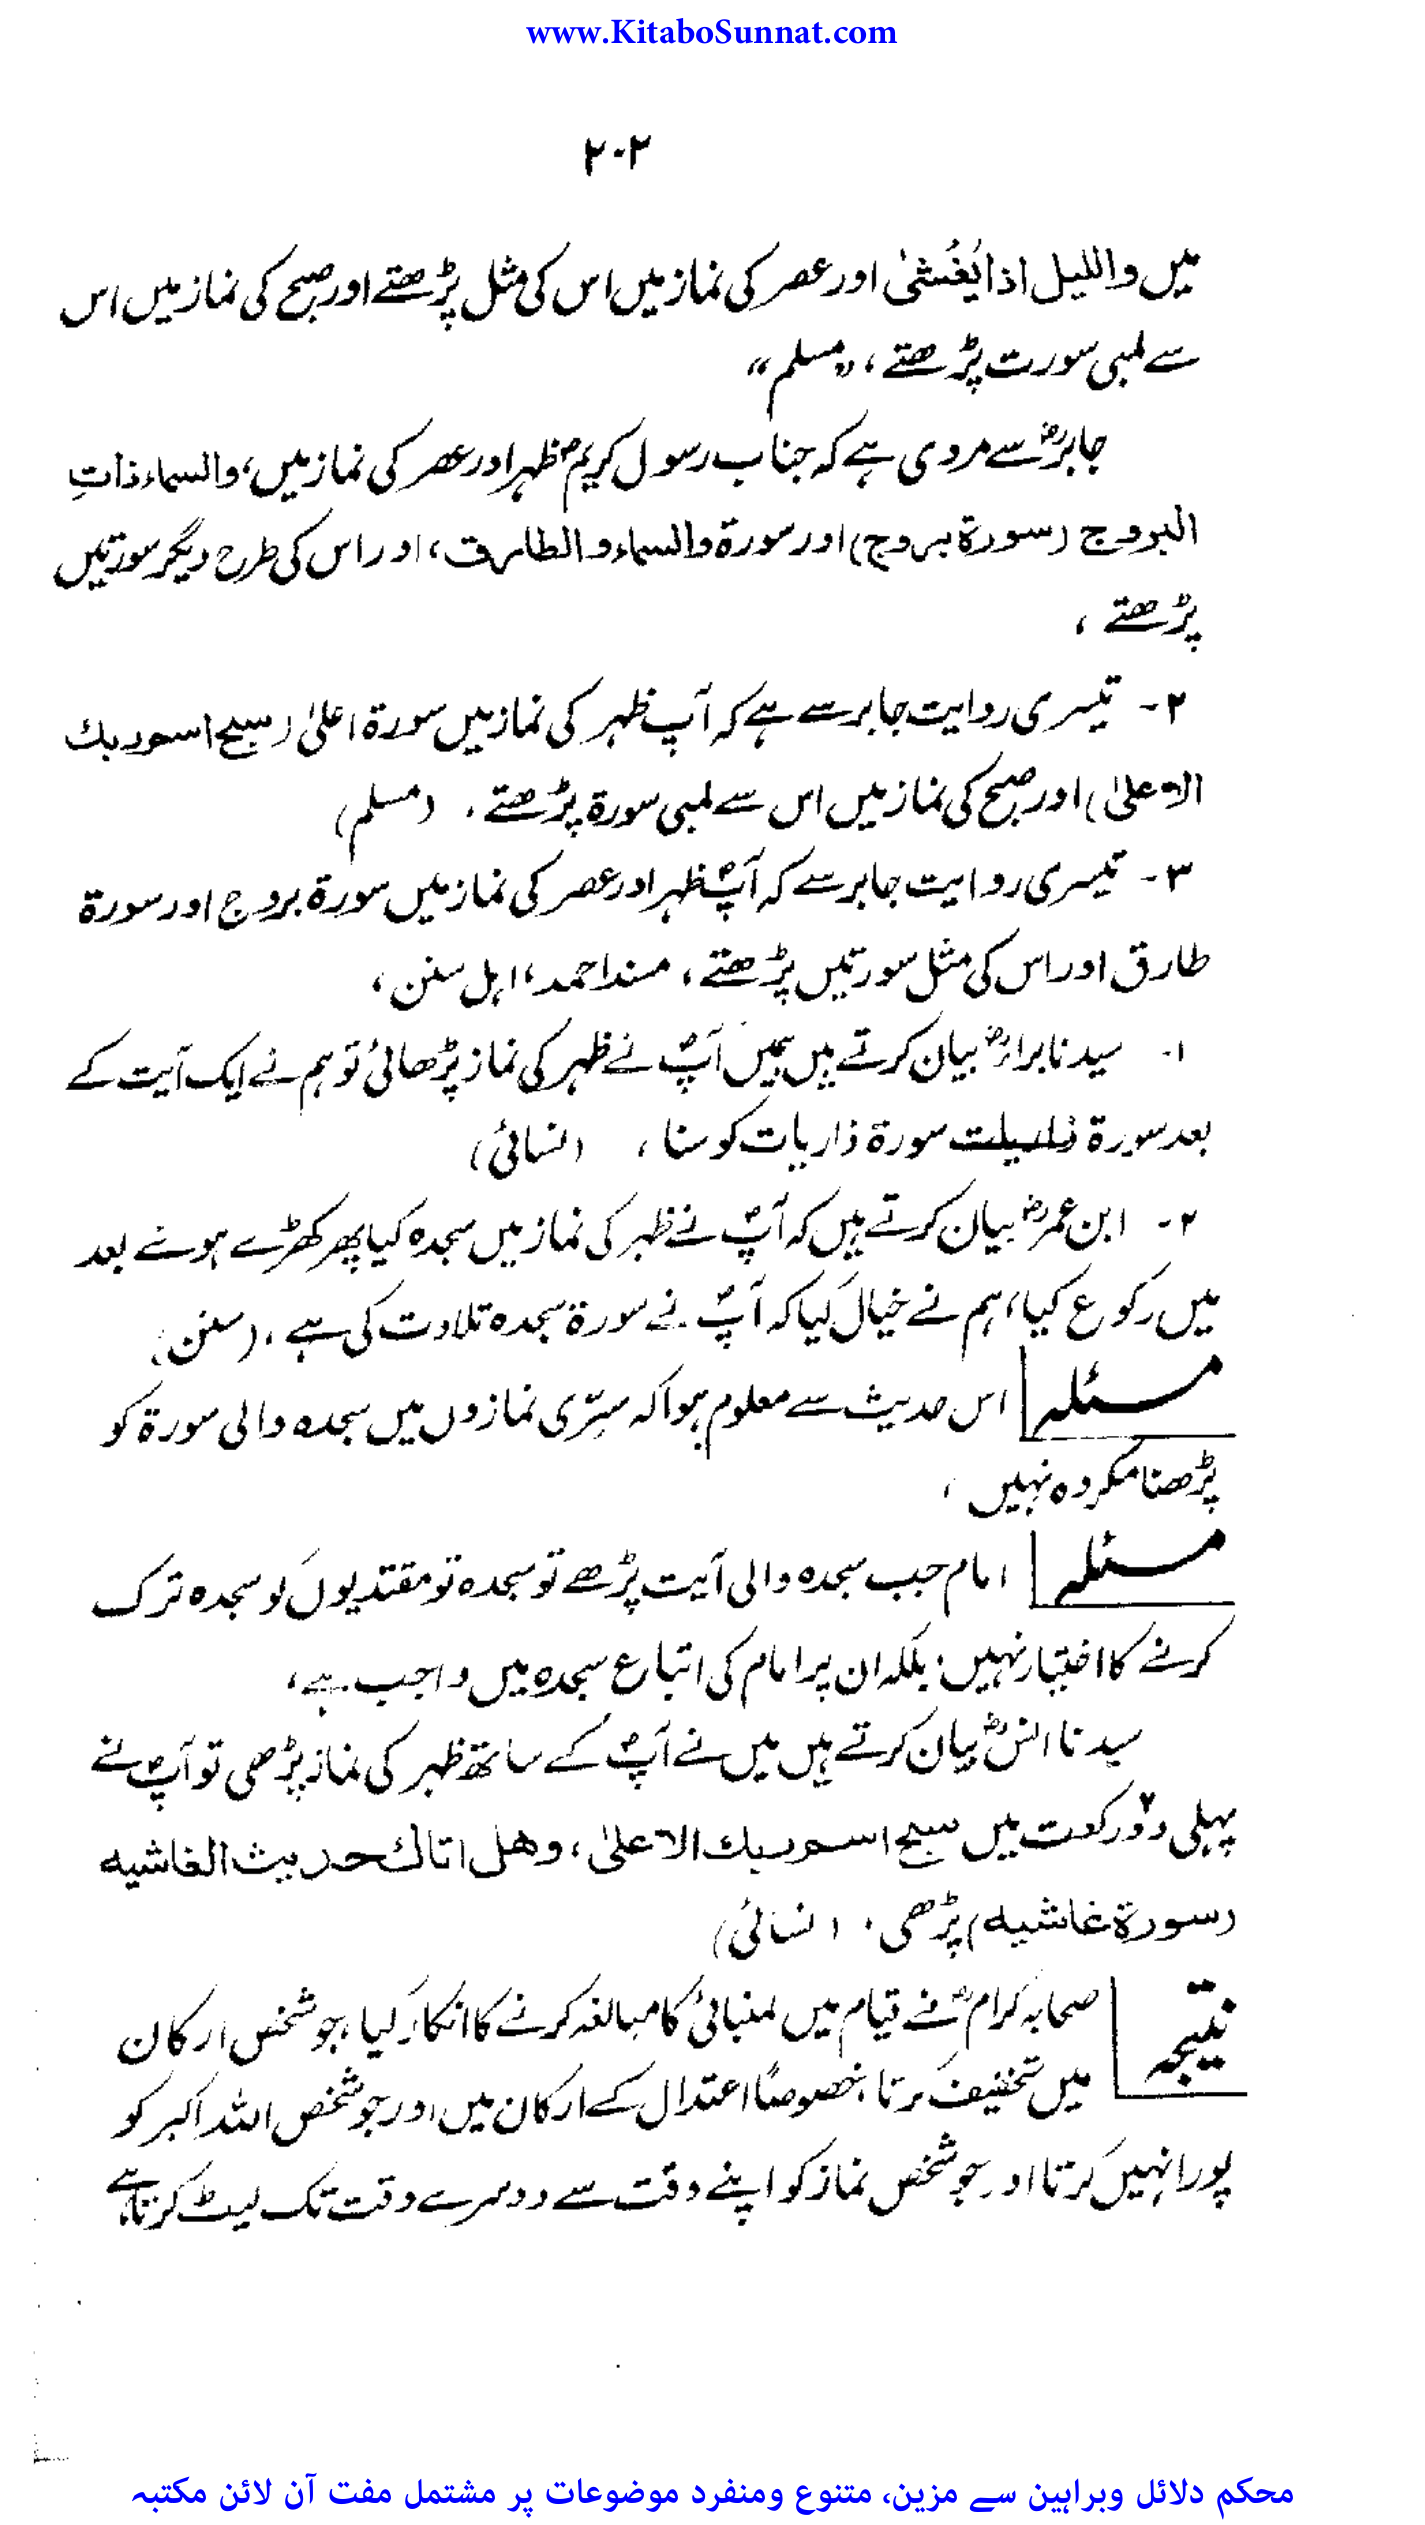 www.KitaboSunnat.com
۲۰۲
میں واللیل اذا یَغْشیٰ اور عصر کی نماز میں اس کی مثل پڑھتے اور صبح کی نماز میں اس
سے لمبی سورت پڑھتے، "مسلم"
جابرؓ سے مروی ہے کہ جناب رسول کریمؐ ظہر اور عصر کی نماز میں، والسماء ذاتِ
البروج (سورۃ بروج) اور سورۃ والسماء والطارق، اور اس کی طرح دیگر سورتیں
پڑھتے ،
۲- تیسری روایت جابر سے ہے کہ آپ ظہر کی نماز میں سورۃ اعلیٰ (سبح اسم ربك
الاعلیٰ) اور صبح کی نماز میں اس سے لمبی سورۃ پڑھتے، (مسلم)
۳- تیسری روایت جابر سے کہ آپؐ ظہر اور عصر کی نماز میں سورۃ بروج اور سورۃ
طارق اور اس کی مثل سورتیں پڑھتے، مسند احمد، اہل سنن،
۱۔ سیدنا براءؓ بیان کرتے ہیں ہمیں آپؐ نے ظہر کی نماز پڑھائی تو ہم نے ایک آیت کے
بعد سورۃ سورۃ ذاریات کو سنا، (نسائی)
۲- ابن عمرؓ بیان کرتے ہیں کہ آپؐ نے ظہر کی نماز میں سجدہ کیا پھر کھڑے ہونے بعد
میں رکوع کیا، ہم نے خیال کیا کہ آپؐ نے سورۃ سجدہ تلاوت کی ہے، (سنن)
مسئلہ اس حدیث سے معلوم ہوا کہ سِرّی نمازوں میں سجدہ والی سورۃ کو
پڑھنا مکروہ نہیں ،
مسئلہ امام جب سجدہ والی آیت پڑھے تو سجدہ تو مقتدیوں کو سجدہ ترک
کرنے کا اختیار نہیں، بلکہ ان پر امام کی اتباع سجدہ میں واجب ہے،
سیدنا انسؓ بیان کرتے ہیں میں نے آپؐ کے ساتھ ظہر کی نماز پڑھی تو آپؐ نے
پہلی دو۲ رکعت میں سبح اسم ربك الاعلیٰ، وهل اتاك حدیث الغاشیه
(سورۃ غاشیه) پڑھی، (نسائی)
نتیجہ صحابہ کرامؓ نے قیام میں لمبائی کا مبالغہ کرنے کا انکار کیا، جو شخص ارکان
میں تخفیف کرتا، خصوصًا اعتدال کے ارکان میں اور جو شخص اللہ اکبر کو
پورا نہیں کرتا اور جو شخص نماز کو اپنے وقت سے دوسرے وقت تک لیٹ کرتا ہے
محکم دلائل وبراہین سے مزین، متنوع ومنفرد موضوعات پر مشتمل مفت آن لائن مکتبہ